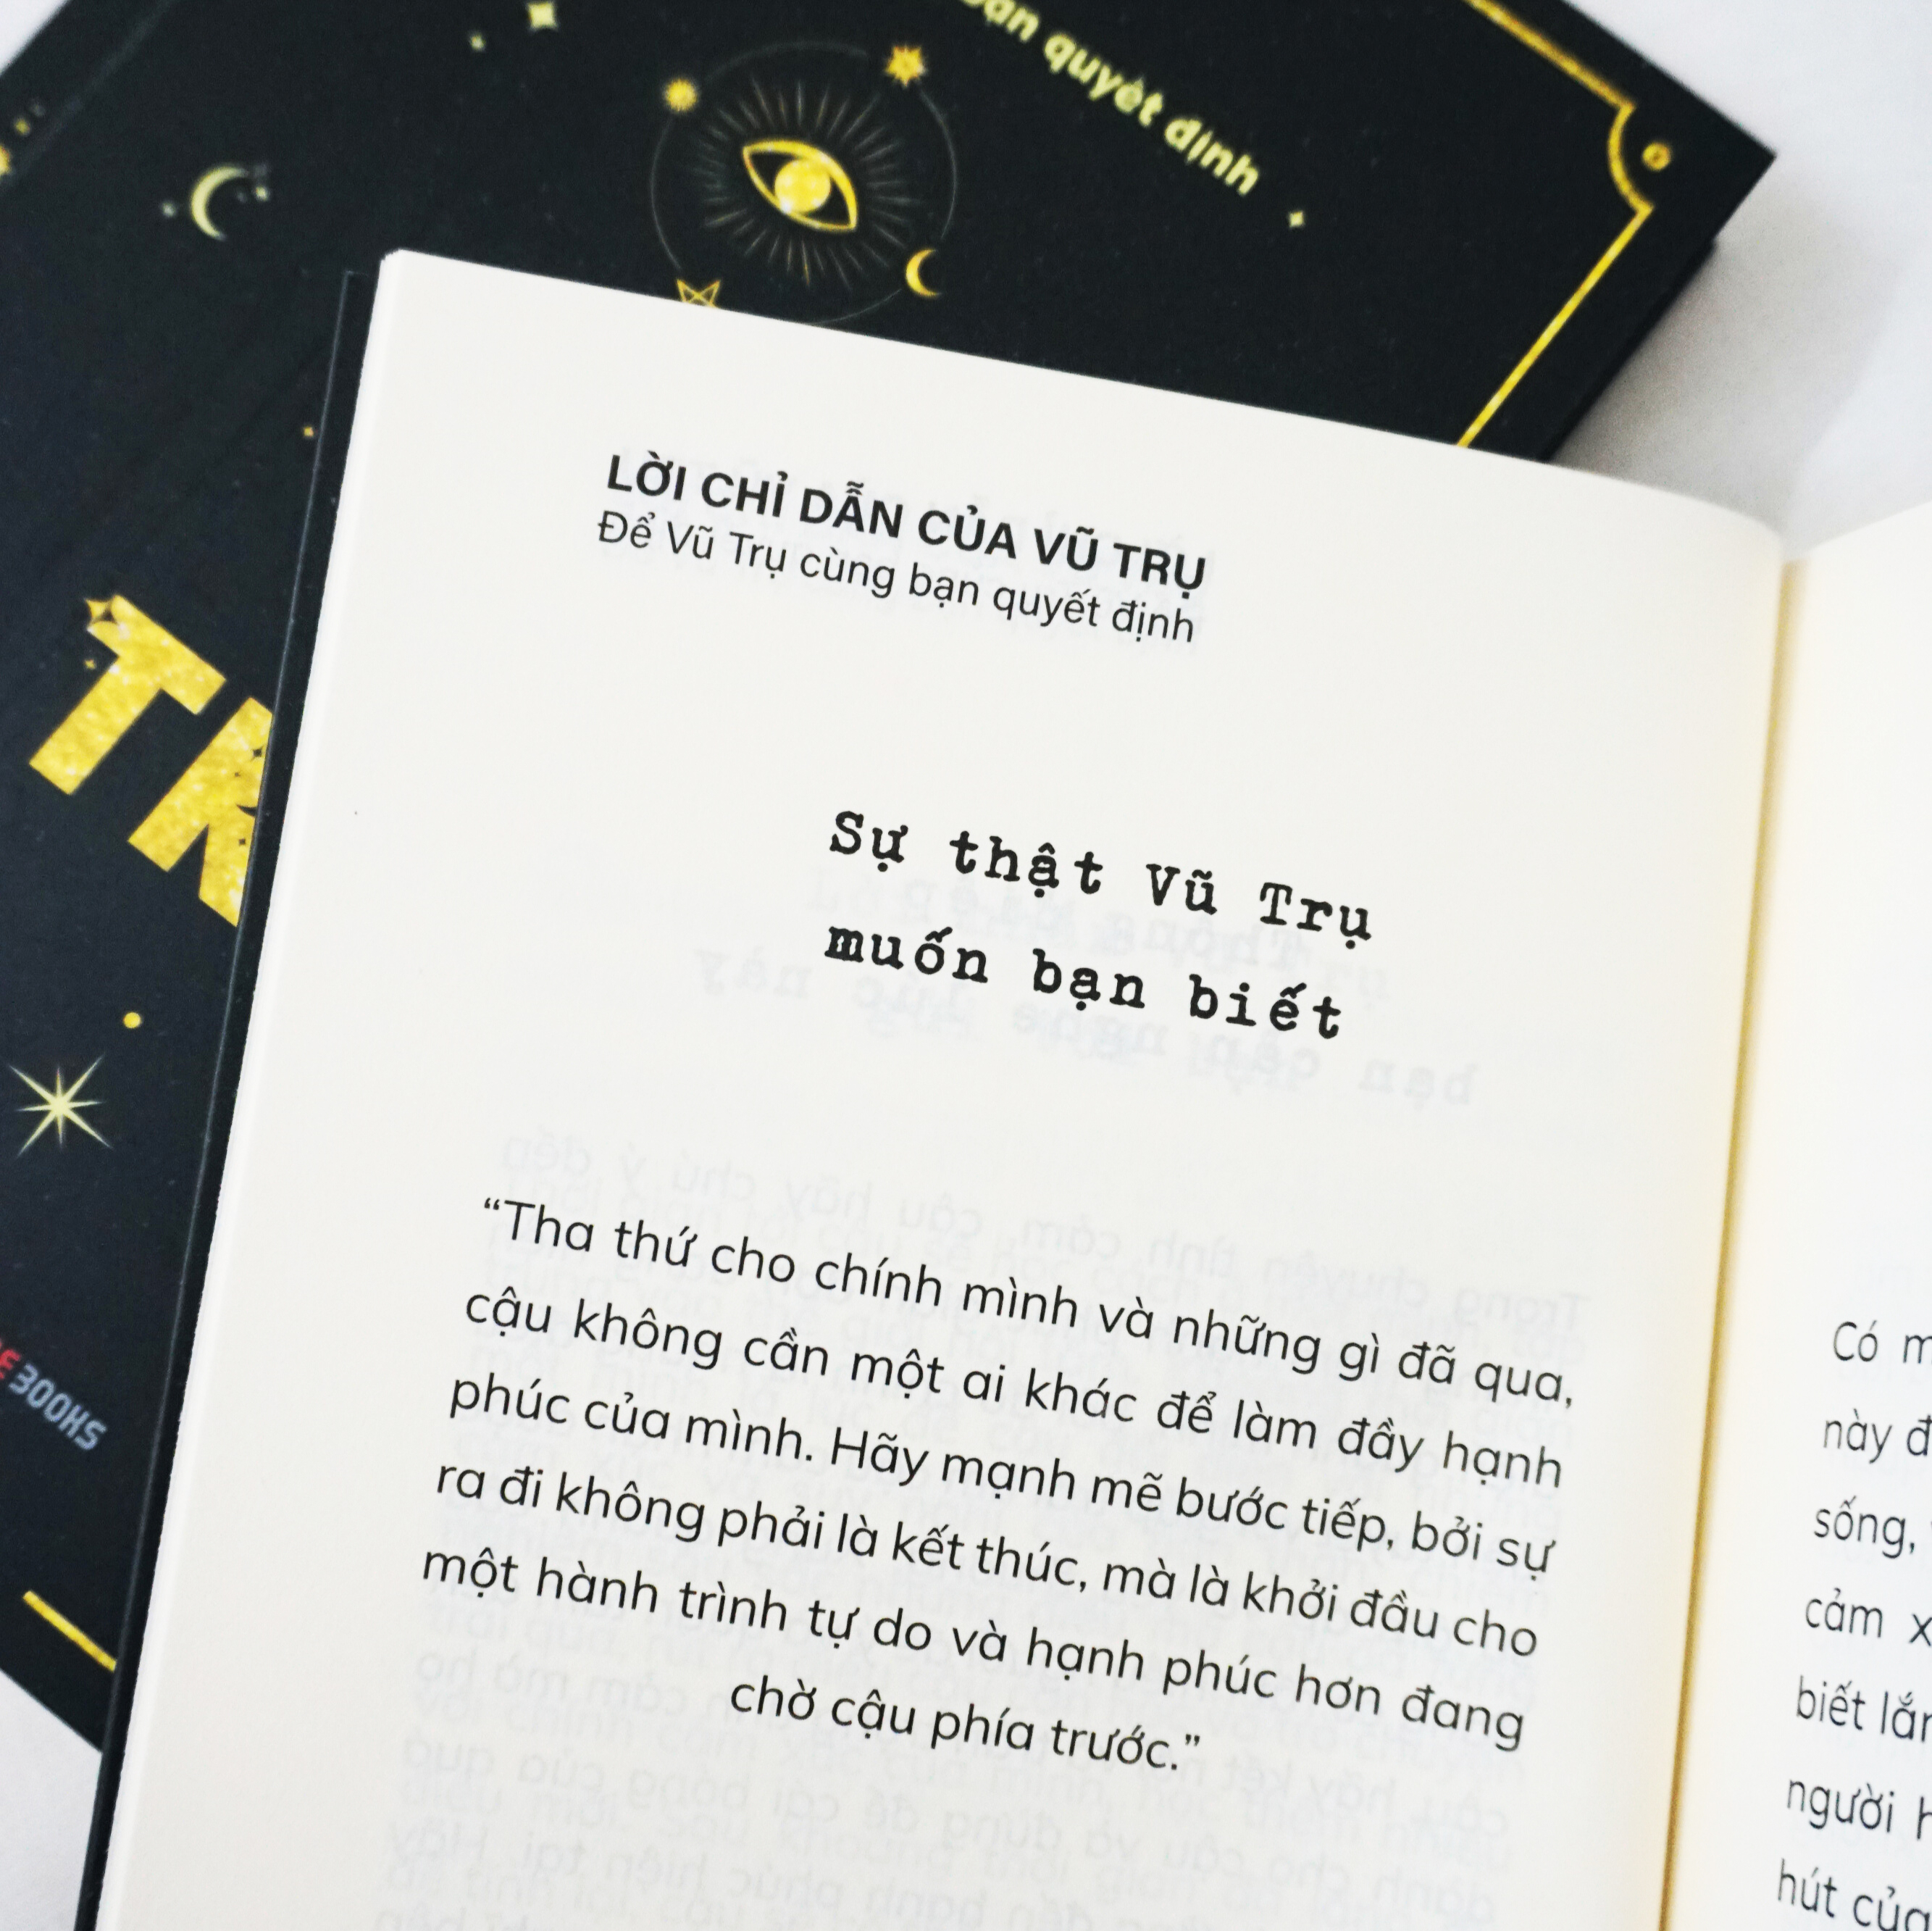 bạn quyết định
LỜI CHỈ DẪN CỦA VŨ TRỤ
Để Vũ Trụ cùng bạn quyết định
Sự thật Vũ Trụ
muốn bạn biết
“Tha thứ cho chính mình và những gì đã qua,
cậu không cần một ai khác để làm đầy hạnh
phúc của mình. Hãy mạnh mẽ bước tiếp, bởi sự
ra đi không phải là kết thúc, mà là khởi đầu cho
một hành trình tự do và hạnh phúc hơn đang
chờ cậu phía trước.”
Có
này
sống,
cảm
biết
người
hút của